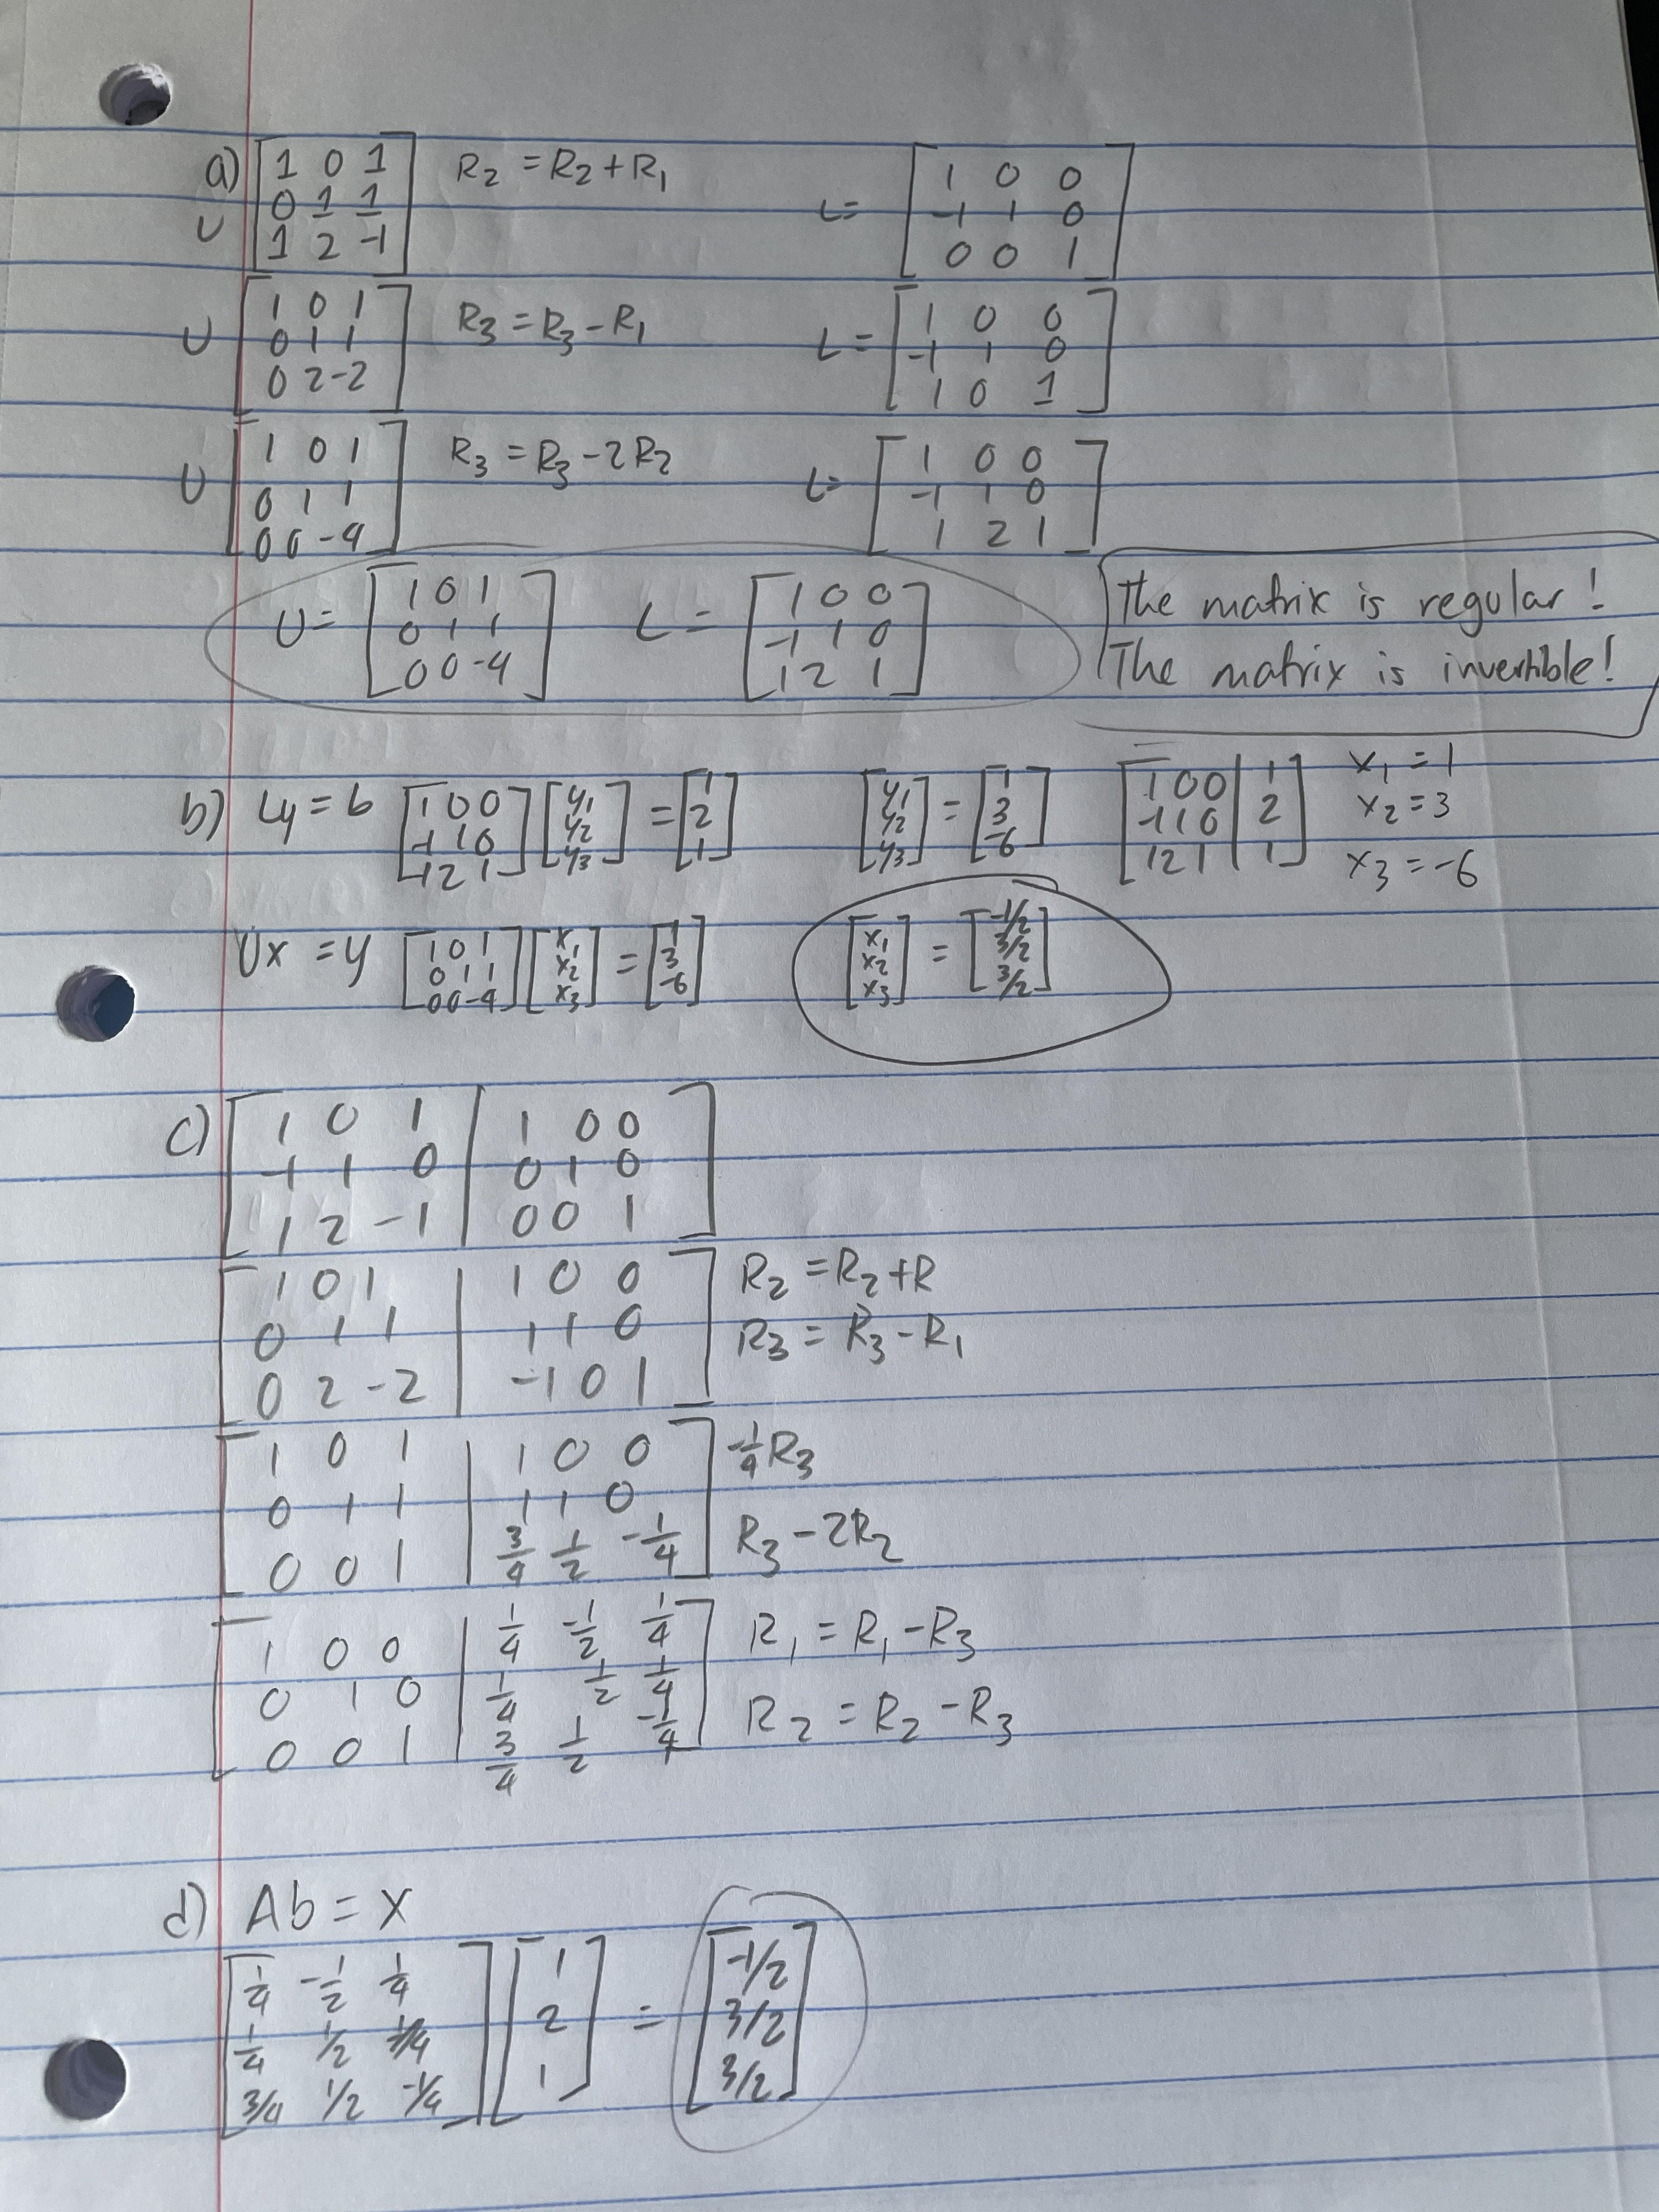 a) U [1 0 1; 0 1 1; 1 2 -1] R₂ = R₂ + R₁ L = [1 0 0; -1 1 0; 0 0 1]
U [1 0 1; 0 1 1; 0 2 -2] R₃ = R₃ - R₁ L = [1 0 0; -1 1 0; 1 0 1]
U [1 0 1; 0 1 1; 0 0 -4] R₃ = R₃ - 2R₂ L = [1 0 0; -1 1 0; 1 2 1]
U = [1 0 1; 0 1 1; 0 0 -4] L = [1 0 0; -1 1 0; 1 2 1]
The matrix is regular!
The matrix is invertible!
b) Ly = b [1 0 0; -1 1 0; 1 2 1] [y₁; y₂; y₃] = [1; 2; 1] [y₁; y₂; y₃] = [1; 3; -6] [1 0 0 | 1; -1 1 0 | 2; 1 2 1 | 1] x₁ = 1
x₂ = 3
x₃ = -6
Ux = y [1 0 1; 0 1 1; 0 0 -4] [x₁; x₂; x₃] = [1; 3; -6] [x₁; x₂; x₃] = [-1/2; 3/2; 3/2]
c) [1 0 1 | 1 0 0; -1 1 0 | 0 1 0; 1 2 -1 | 0 0 1]
[1 0 1 | 1 0 0; 0 1 1 | 1 1 0; 0 2 -2 | -1 0 1] R₂ = R₂ + R
R₃ = R₃ - R₁
[1 0 1 | 1 0 0; 0 1 1 | 1 1 0; 0 0 1 | 3/4 1/2 -1/4] -1/4 R₃
R₃ - 2R₂
[1 0 0 | 1/4 -1/2 1/4; 0 1 0 | 1/4 1/2 1/4; 0 0 1 | 3/4 1/2 -1/4] R₁ = R₁ - R₃
R₂ = R₂ - R₃
d) Ab = x
[1/4 -1/2 1/4; 1/4 1/2 1/4; 3/4 1/2 -1/4] [1; 2; 1] = [-1/2; 3/2; 3/2]